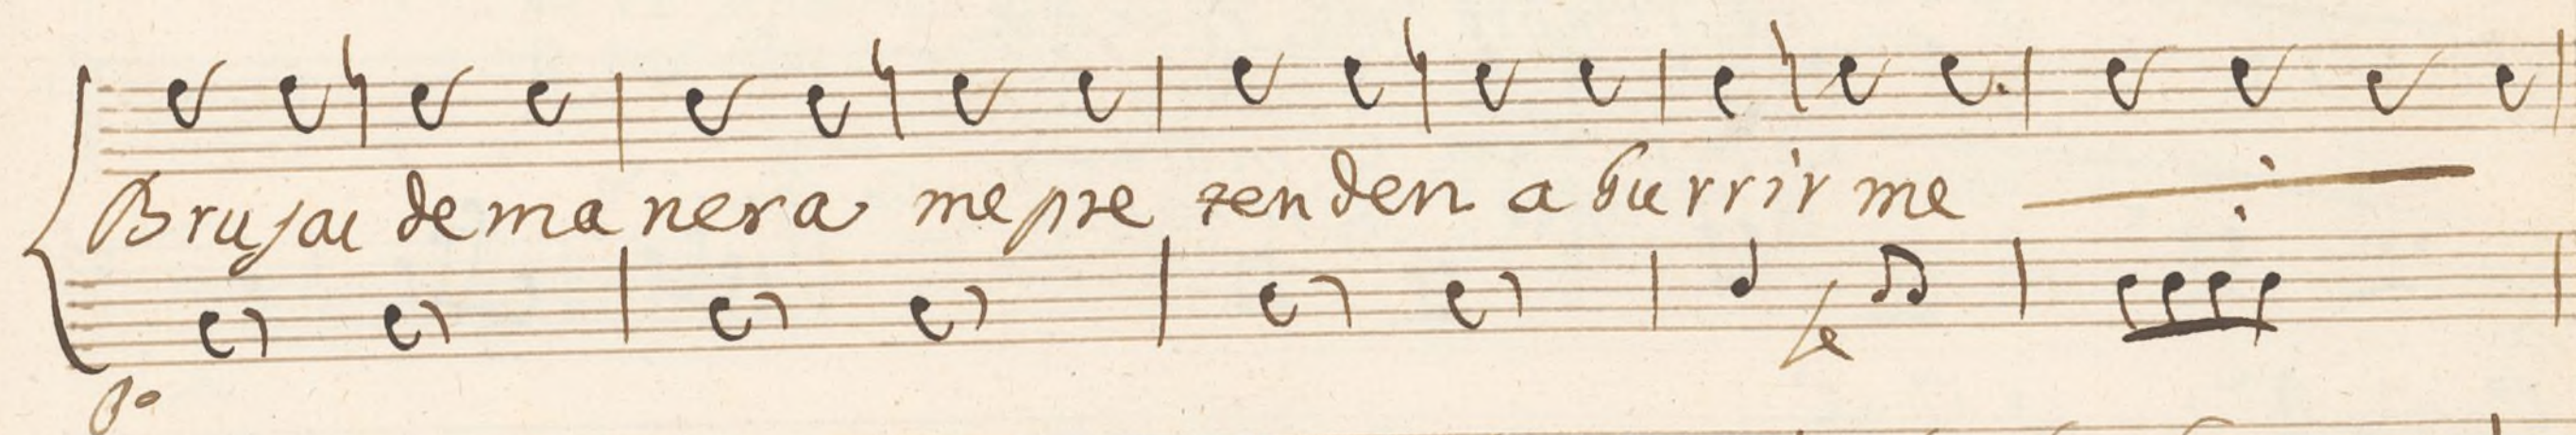 Brujas de manera me pretenden aburrirme
fe
po